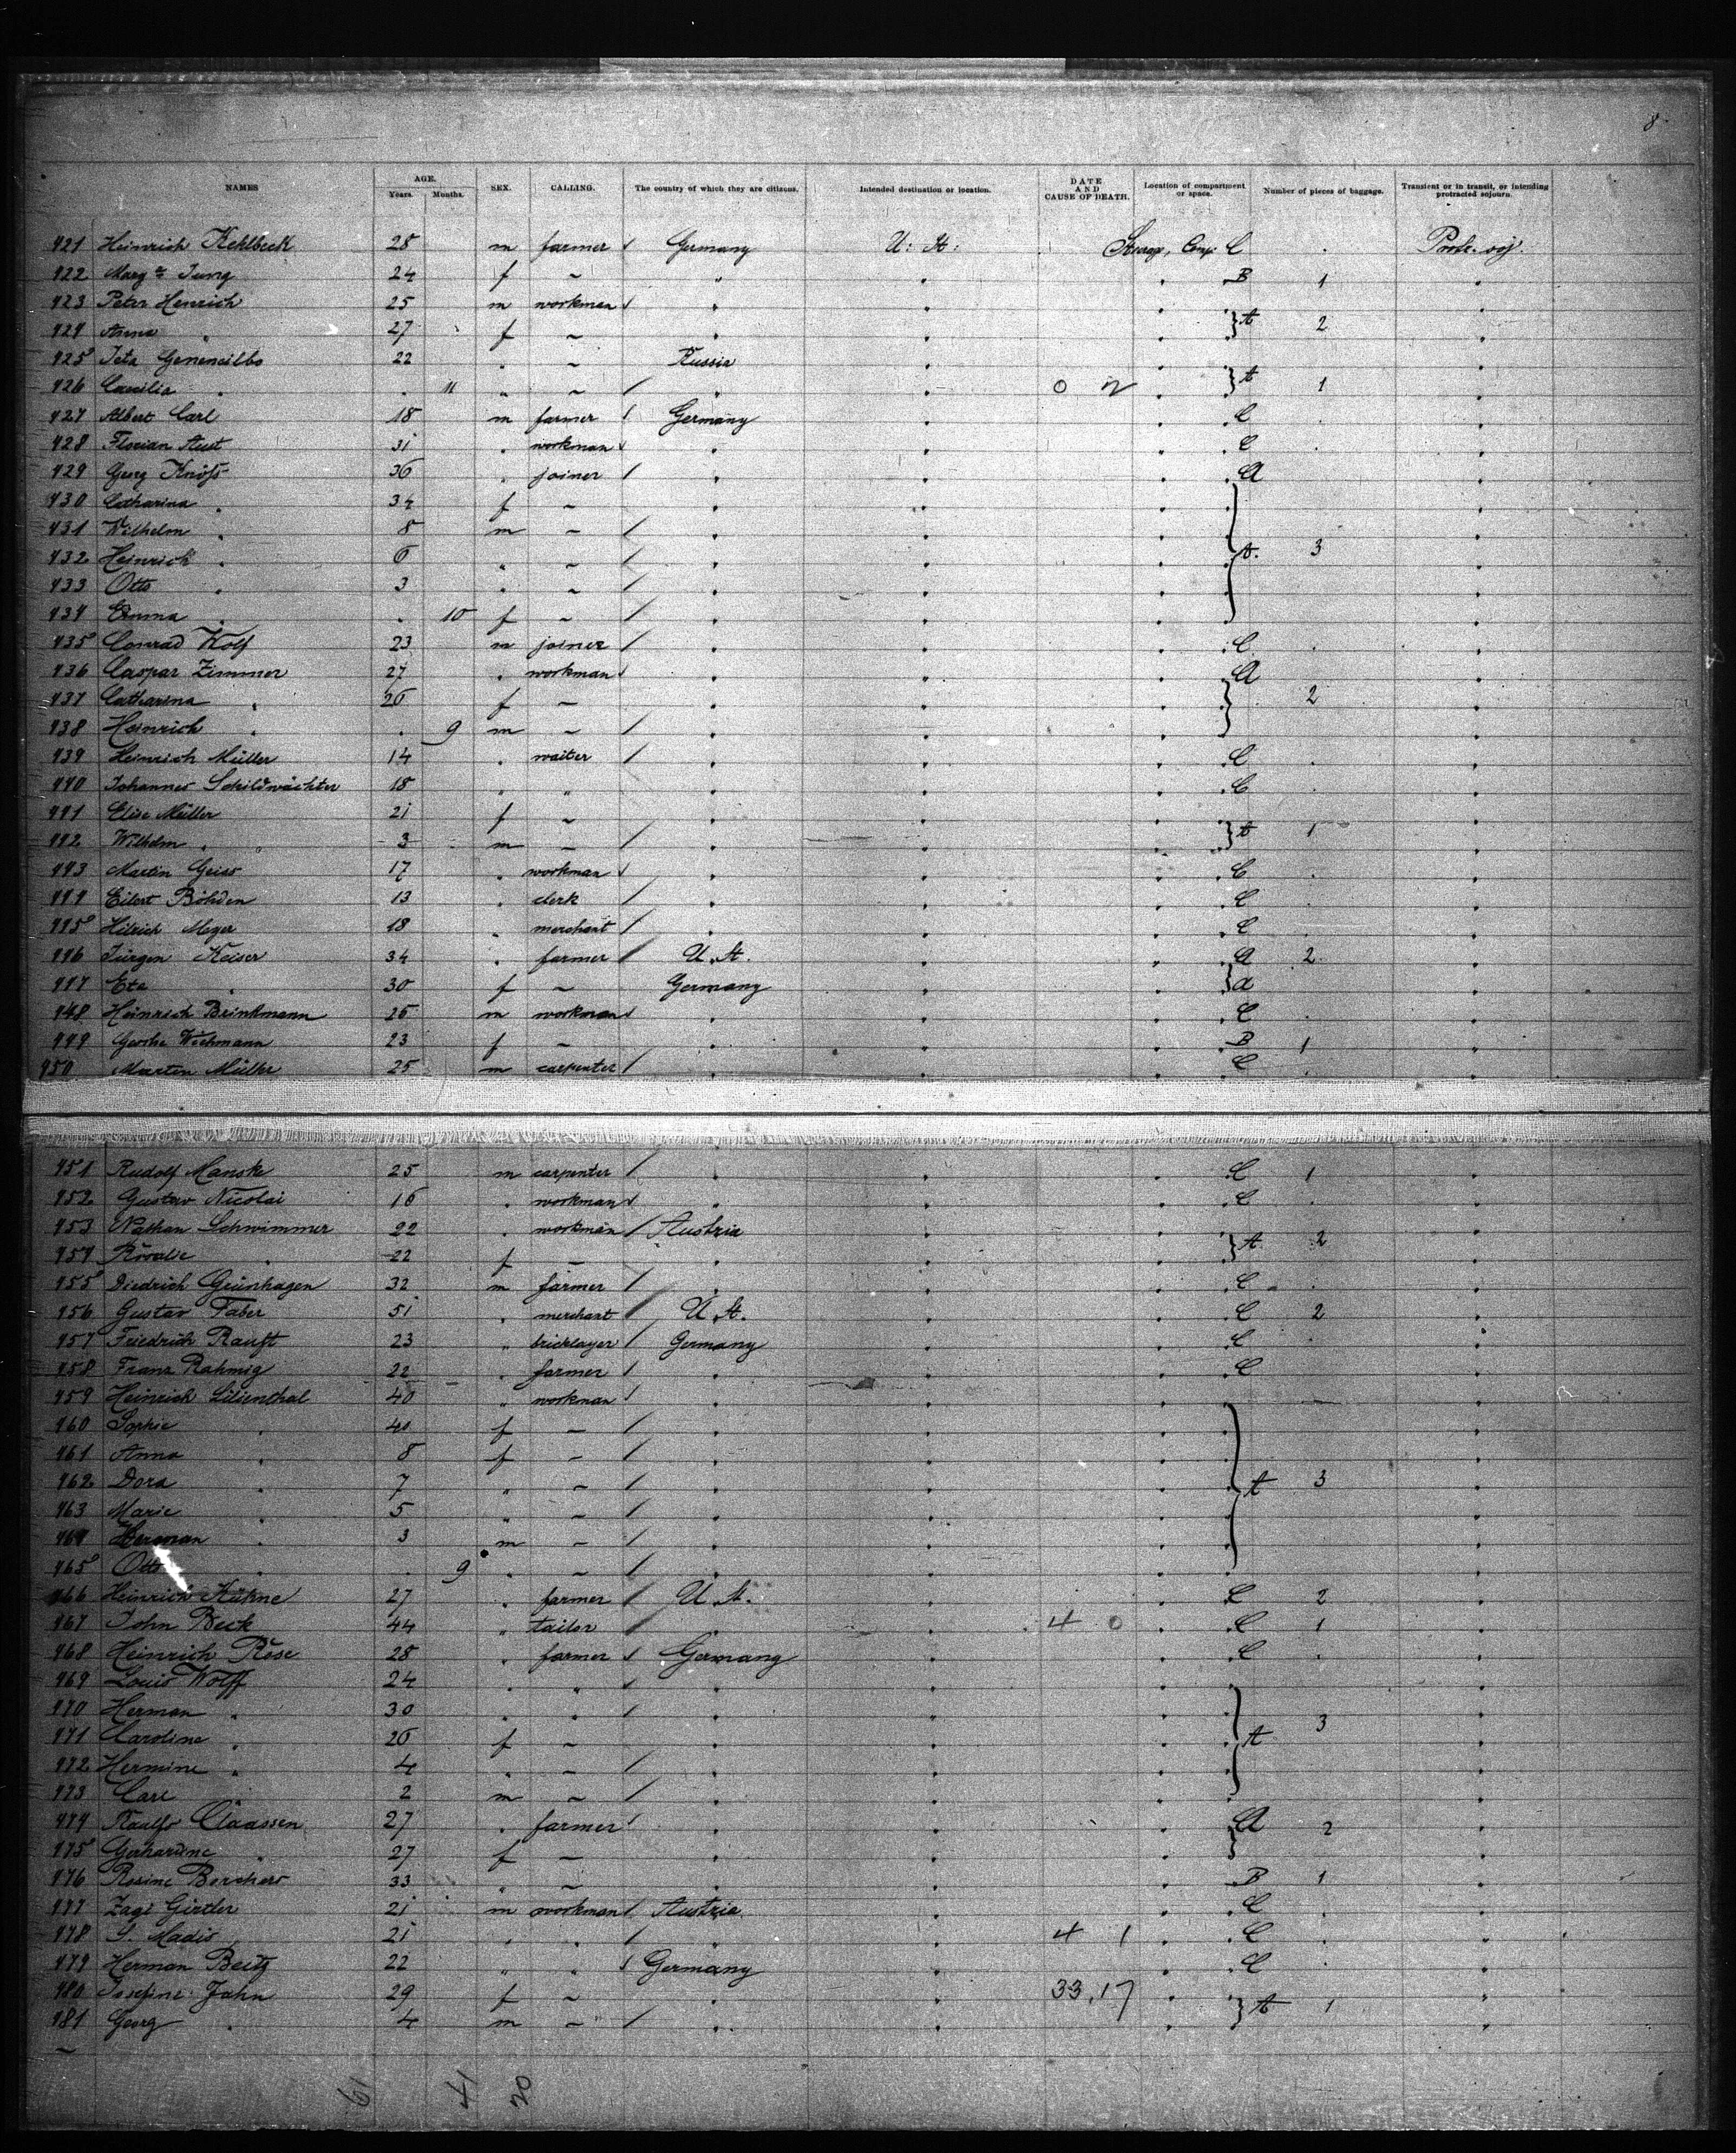 8
NAMES AGE. Years. Months. SEX. CALLING. The country of which they are citizens. Intended destination or location. DATE AND CAUSE OF DEATH. Location of compartment or space. Number of pieces of baggage. Transient or in transit, or intending protracted sojourn.
421 Heinrich Kehlbeck 28 m farmer Germany U: St: C
422 Jung 24 f ~ " " B 1 "
423 Peter Henrich 25 m workman " " "
424 Anna " 27 f ~ " " } A 2 "
425 22 " ~ Russia " "
426 Caecilia " 11 " ~ / " " 0 } A 1 "
427 Albert Carl 18 m farmer / Germany " C "
428 Florian Aust 31 " workman " " C "
429 Georg Knöß 36 " joiner / " " A "
430 Catharina " 34 f ~ " " "
431 Wilhelm " 8 m ~ / " " "
432 Heinrich " 6 " ~ / " " } A. 3 "
433 Otto " 3 " ~ / " " "
434 Emma " 10 f ~ / " " "
435 Conrad Wolf 23 m joiner / " " C "
436 Caspar Zimmer 27 " workman " " A "
437 Catharina " 26 f ~ " " } 2 "
438 Heinrich " 9 m ~ / " " "
439 Heinrich Müller 14 " waiter / " " C "
440 Johannes Schildwächter 18 " " " " C "
441 Elise Müller 21 f ~ " " "
442 Wilhelm " 3 m ~ / " " } A 1 "
443 Martin Geiss 17 " workman " " C "
444 Eilert Böhden 13 " clerk / " " C "
445 Hilrich Meyer 18 " merchant / " " C "
446 Jürgen Keiser 34 " farmer / U. St. " A 2 "
447 Eta " 30 f ~ Germany " } A "
448 Heinrich Brinkmann 26 m workman " " C "
449 Gesche Wichmann 23 f ~ " " B 1 "
450 Martin Müller 25 m carpenter / " " C "
451 Rudolf Manske 25 m carpenter / " " C 1 "
452 Gustav Nicolai 16 " workman " " C "
453 Nathan Schwimmer 22 " workman / Austria " "
454 Rosalie " 22 f ~ " " } A 2 "
455 Diedrich Grünhagen 32 m farmer / " " C "
456 Gustav Faber 51 " merchant / U. St. " C 2 "
457 Friedrich Rauft 23 " bricklayer / Germany " C "
458 Franz Rahmig 22 " farmer / " " C "
459 Heinrich Lilienthal 40 " workman " " "
460 Sophie " 40 f ~ / " " "
461 Anna " 8 f ~ / " " "
462 Dora " 7 " ~ / " " } A 3 "
463 Marie " 5 " ~ / " " "
464 Herman " 3 m ~ / " " "
465 Otto " 9 " ~ / " " "
466 Heinrich Kühne 27 " farmer / U. St. " C 2 "
467 John Beck 44 " tailor / " " 4 0 C 1 "
468 Heinrich Röse 28 " farmer Germany " C "
469 Louis Wolff 24 " " " " "
470 Herman " 30 " " / " " "
471 Caroline " 26 f ~ " " } A 3 "
472 Hermine " 4 " ~ / " " "
473 Carl 2 m ~ / " " "
474 Claassen 27 " farmer / " " A 2 "
475 Gerhardine " 27 f ~ " " } "
476 Rosine Borchers 33 " ~ " " B 1 "
477 Girtler 21 m workman / Austria " C "
478 Madis 21 " " / " " 4 1 C "
479 Herman Beitz 22 " " Germany " C "
480 Josefine Jahn 29 f ~ " " 33,17 "
481 Georg " 4 m ~ / " " } A 1 "
61 41 20